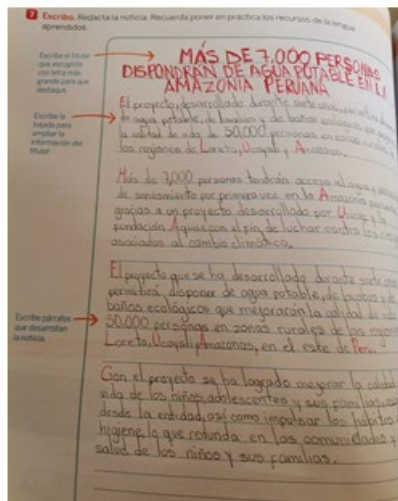 7 Escribo. Redacta la noticia. Recuerda poner en práctica los recursos de la lengua
aprendidos.
Escribe el titular
que escogiste
con letra más
grande para que
destaque.
MÁS DE 7.000 PERSONAS
DISPONDRÁN DE AGUA POTABLE EN LA
AMAZONÍA PERUANA
Escribe la
bajada para
ampliar la
información del
titular.
El proyecto, desarrollado durante siete años,
de agua potable, de lavabos y de baños ecológicos que
la calidad de vida de 50,000 personas en zonas rurales
las regiones de Loreto, Ucayali y Amazonas.
Más de 7,000 personas tendrán acceso al agua y
de saneamiento por primera vez en la Amazonía peruana
gracias a un proyecto desarrollado por Unicef y la
fundación Aquae con el fin de luchar contra los
asociados al cambio climático.
Escribe párrafos
que desarrollan
la noticia.
El proyecto que se ha desarrollado durante siete
permitirá disponer de agua potable, de lavabos y de
baños ecológicos que mejorarán la calidad de vida
50,000 personas en zonas rurales de las regiones
Loreto, Ucayali y Amazonas, en el este de Perú.
Con el proyecto se ha logrado mejorar la calidad
vida de los niños, adolescentes y sus familias,
desde la entidad, así como impulsar los hábitos
higiene, lo que redunda en las comunidades y
salud de los niños y sus familias.